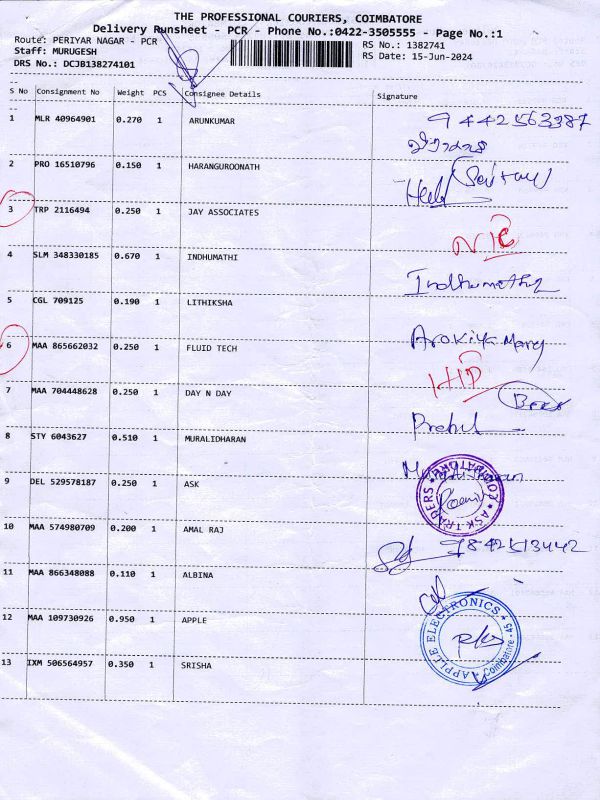 THE PROFESSIONAL COURIERS, COIMBATORE
Delivery Runsheet - PCR - Phone No.:0422-3505555 - Page No.:1
Route: PERIYAR NAGAR - PCR
RS No.: 1382741
Staff: MURUGESH
RS Date: 15-Jun-2024
DRS No.: DCJB138274101
S No Consignment No Weight PCS Consignee Details Signature
1 MLR 40964901 0.270 1 ARUNKUMAR 9442563387
2 PRO 16510796 0.150 1 HARANGUROONATH
3 TRP 2116494 0.250 1 JAY ASSOCIATES
4 SLM 348330185 0.670 1 INDHUMATHI Indhumathy
5 CGL 709125 0.190 1 LITHIKSHA Arokiya Mary
6 MAA 865662032 0.250 1 FLUID TECH
7 MAA 704448628 0.250 1 DAY N DAY
8 STY 6043627 0.510 1 MURALIDHARAN
9 DEL 529578187 0.250 1 ASK ASK TRADERS COIMBATORE
10 MAA 574980709 0.200 1 AMAL RAJ 9842513442
11 MAA 866348088 0.110 1 ALBINA
12 MAA 109730926 0.950 1 APPLE APPLE ELECTRONICS Coimbatore - 45
13 IXM 506564957 0.350 1 SRISHA